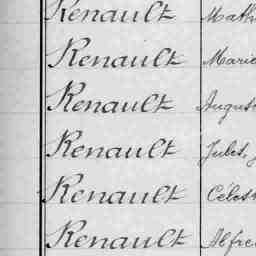 Renault Math
Renault Marie
Renault August
Renault Jules,
Renault Célest
Renault Alfre